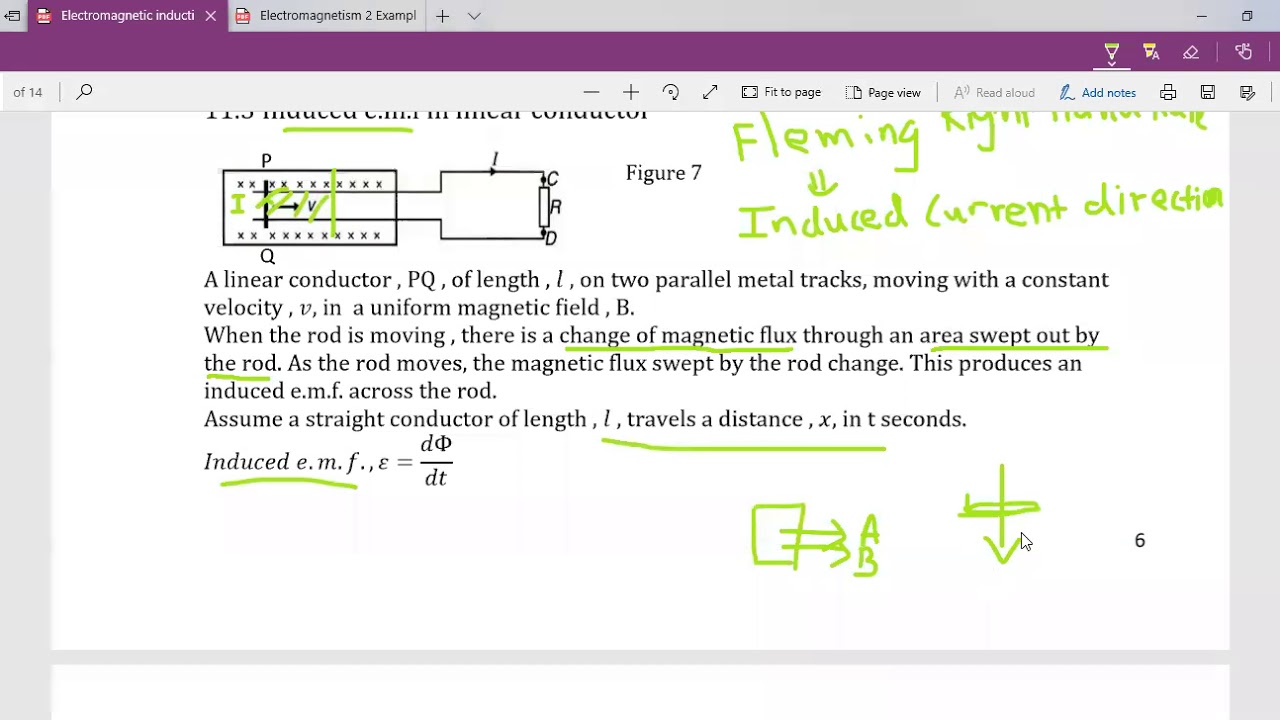 Electromagnetic inducti
Electromagnetism 2 Exampl
of 14
Fit to page
Page view
Read aloud
Add notes
11.3 Induced e.m.f in linear conductor
Fleming Right hand rule
⇓
Induced Current direction
P
I
C
Figure 7
x x x x x x x x x x x
I
v
R
x x x x x x x x x x
D
Q
A linear conductor , PQ , of length , l , on two parallel metal tracks, moving with a constant
velocity , v, in a uniform magnetic field , B.
When the rod is moving , there is a change of magnetic flux through an area swept out by
the rod. As the rod moves, the magnetic flux swept by the rod change. This produces an
induced e.m.f. across the rod.
Assume a straight conductor of length , l , travels a distance , x, in t seconds.
Induced e.m.f., ε = dΦ/dt
A
B
6